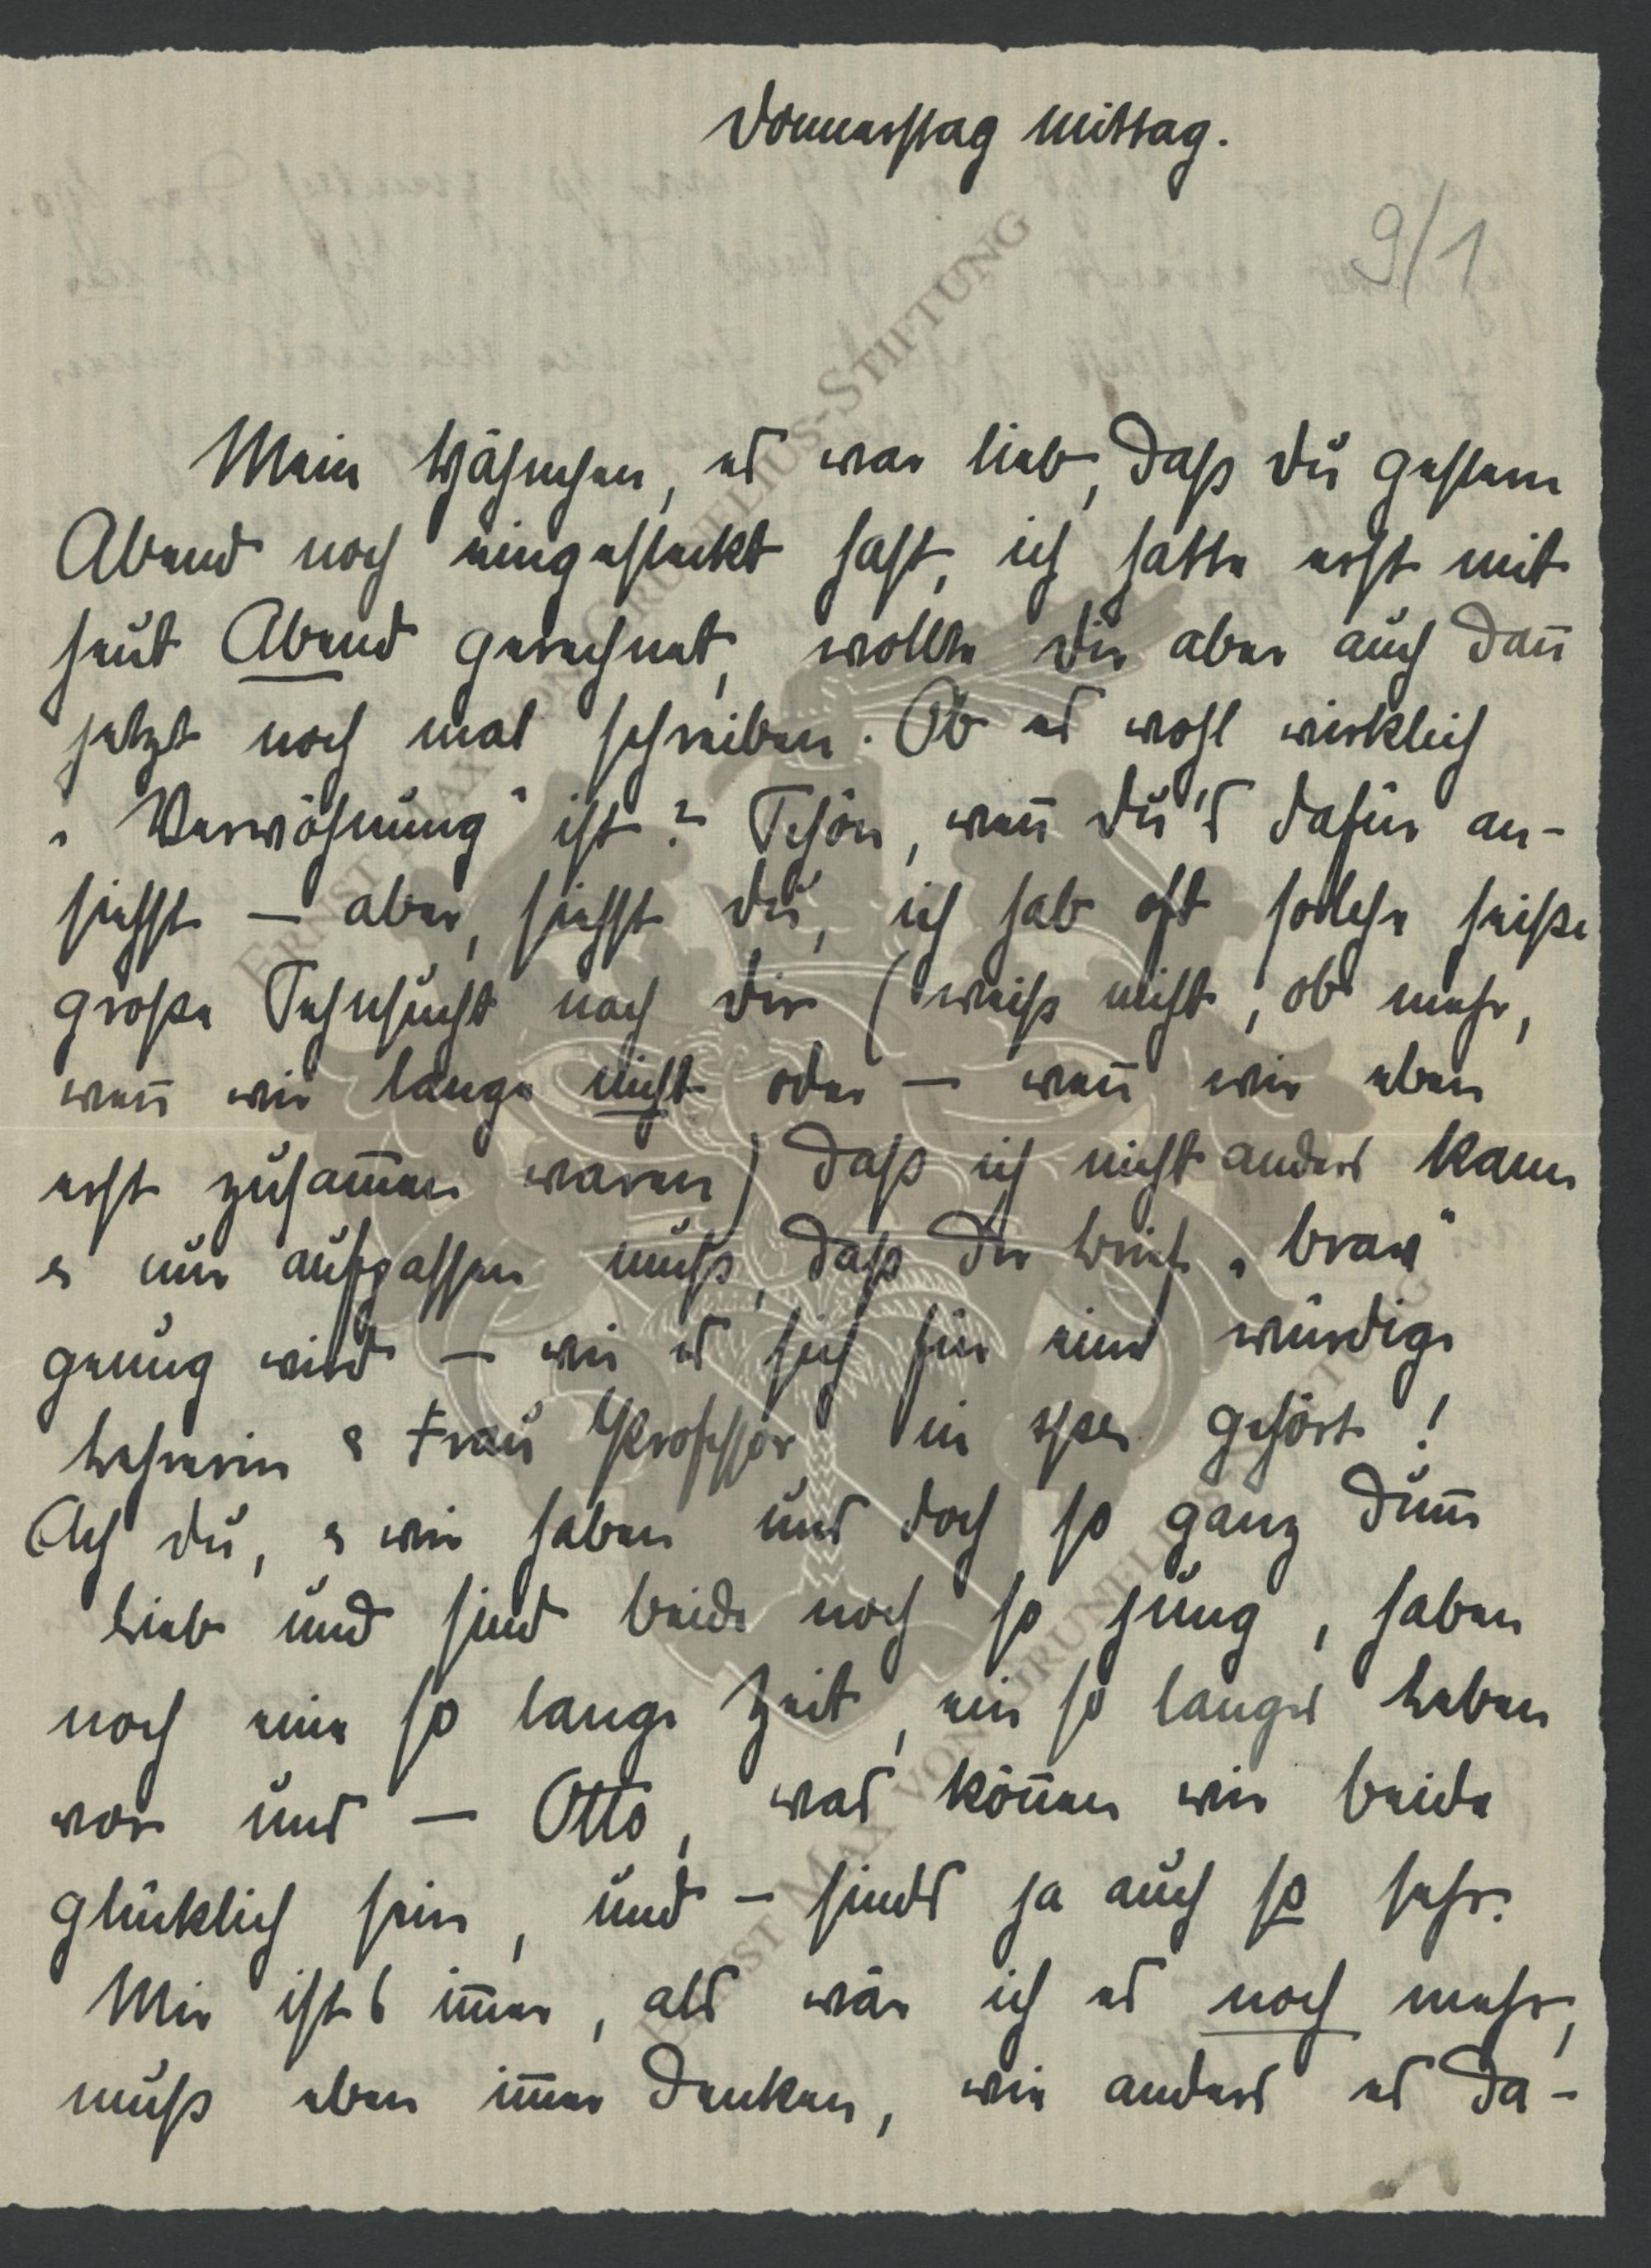 Donnerstag Mittag.
9/1
Mein Hähnchen, es war lieb, daß Du gestern
Abend noch eingesteckt hast, ich hatte erst mit
heut Abend gerechnet, wollte Dir aber auch dan̄
jetzt noch mal schreiben. Ob es wohl wirklich
„Verwöhnung“ ist? Schön, wen̄ Du's dafür an-
siehst – aber, siehst Du, ich hab oft solche heiße
große Sehnsucht nach Dir (weiß nicht, ob mehr,
wen̄ wir lange nicht oder – wen̄ wir eben
erst zusam̄en waren) daß ich nicht anders kann
& nur aufpassen muß, daß der Brief „brav“
genug wird – wie es sich für eine würdige
Lehrerin & Frau Professor in spe gehört!
Ach Du, & wir haben uns doch so ganz dum̄
lieb und sind beide noch so jung, haben
noch eine so lange Zeit, ein so langes Leben
vor uns – Otto, was kön̄en wir beide
glücklich sein, und – sinds ja auch so sehr.
Mir ists im̄er, als wär ich es noch mehr,
muß eben im̄er denken, wie anders es da-
ERNST MAX VON GRUNELIUS-STIFTUNG
ERNST MAX VON GRUNELIUS-STIFTUNG